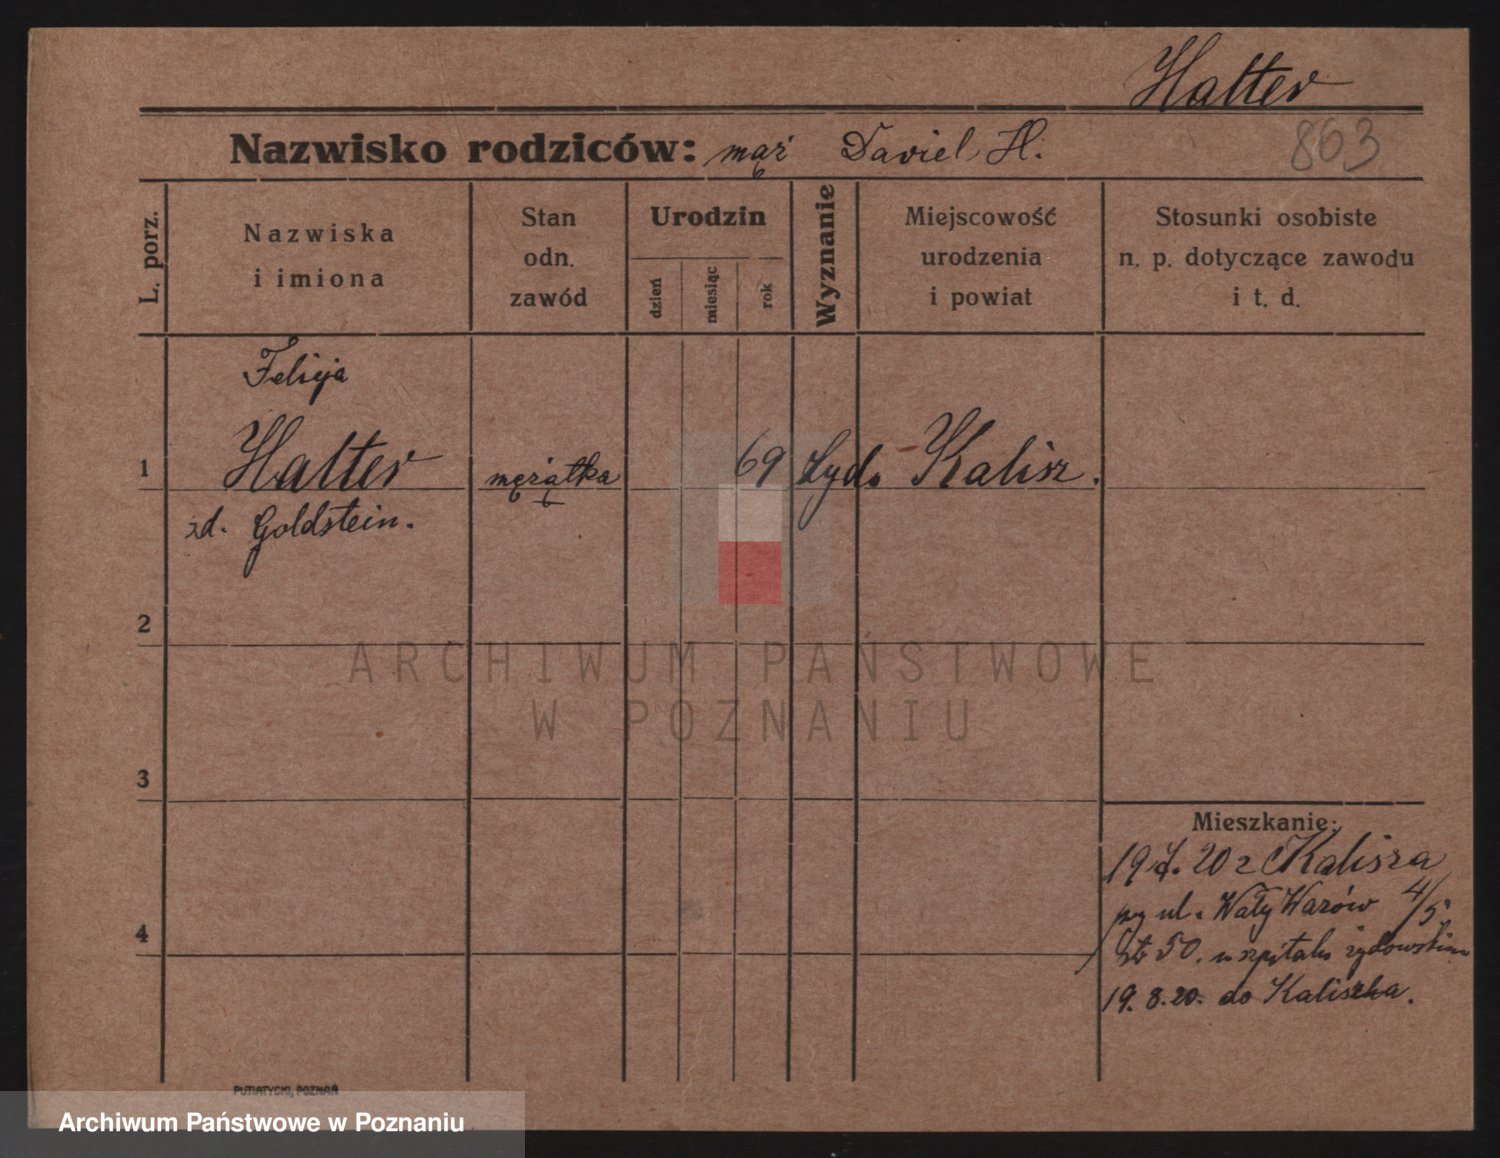 Halter
Nazwisko rodziców: mąż Daviel H.
863
L. porz.
Nazwiska
i imiona
Stan
odn.
zawód
Urodzin
dzień
miesiąc
rok
Wyznanie
Miejscowość
urodzenia
i powiat
Stosunki osobiste
n. p. dotyczące zawodu
i t. d.
Felicja
1 Halter mężatka 69 żyd. Kalisz.
zd. Goldstein.
2
3
4
Mieszkanie:
19 7. 20 z Kalisza
przy ul. Wały Wazów 4/5.
50. w szpitalu żydowskim
19. 8. 20. do Kalisza.
ARCHIWUM PAŃSTWOWE
W POZNANIU
PUTIATYCKI, POZNAŃ
Archiwum Państwowe w Poznaniu